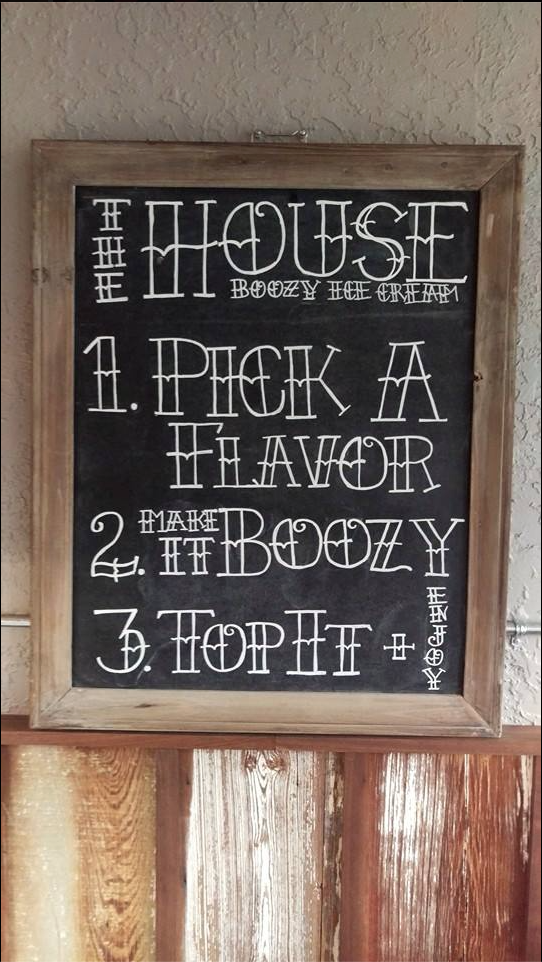 THE HOUSE
BOOZY ICE CREAM
1. PICK A
FLAVOR
2. MAKE IT BOOZY
3. TOP IT + ENJOY